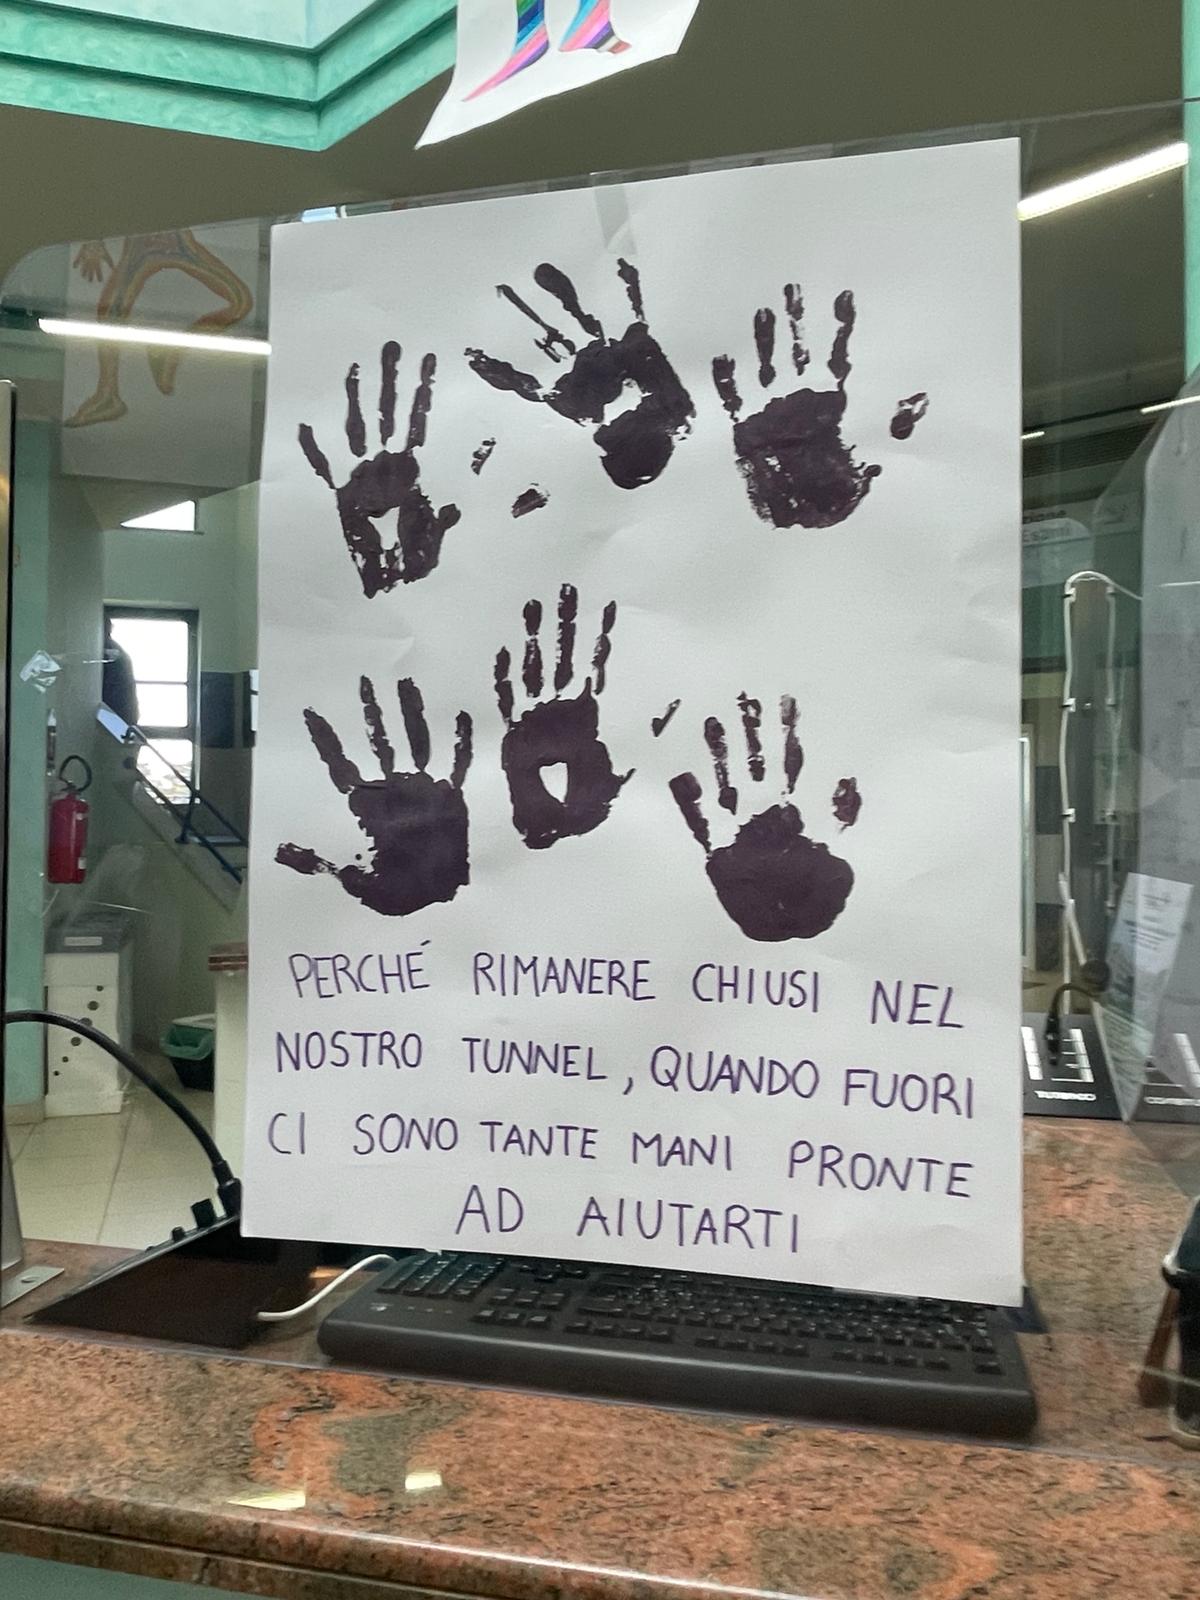 PERCHÉ RIMANERE CHIUSI NEL
NOSTRO TUNNEL, QUANDO FUORI
CI SONO TANTE MANI PRONTE
AD AIUTARTI